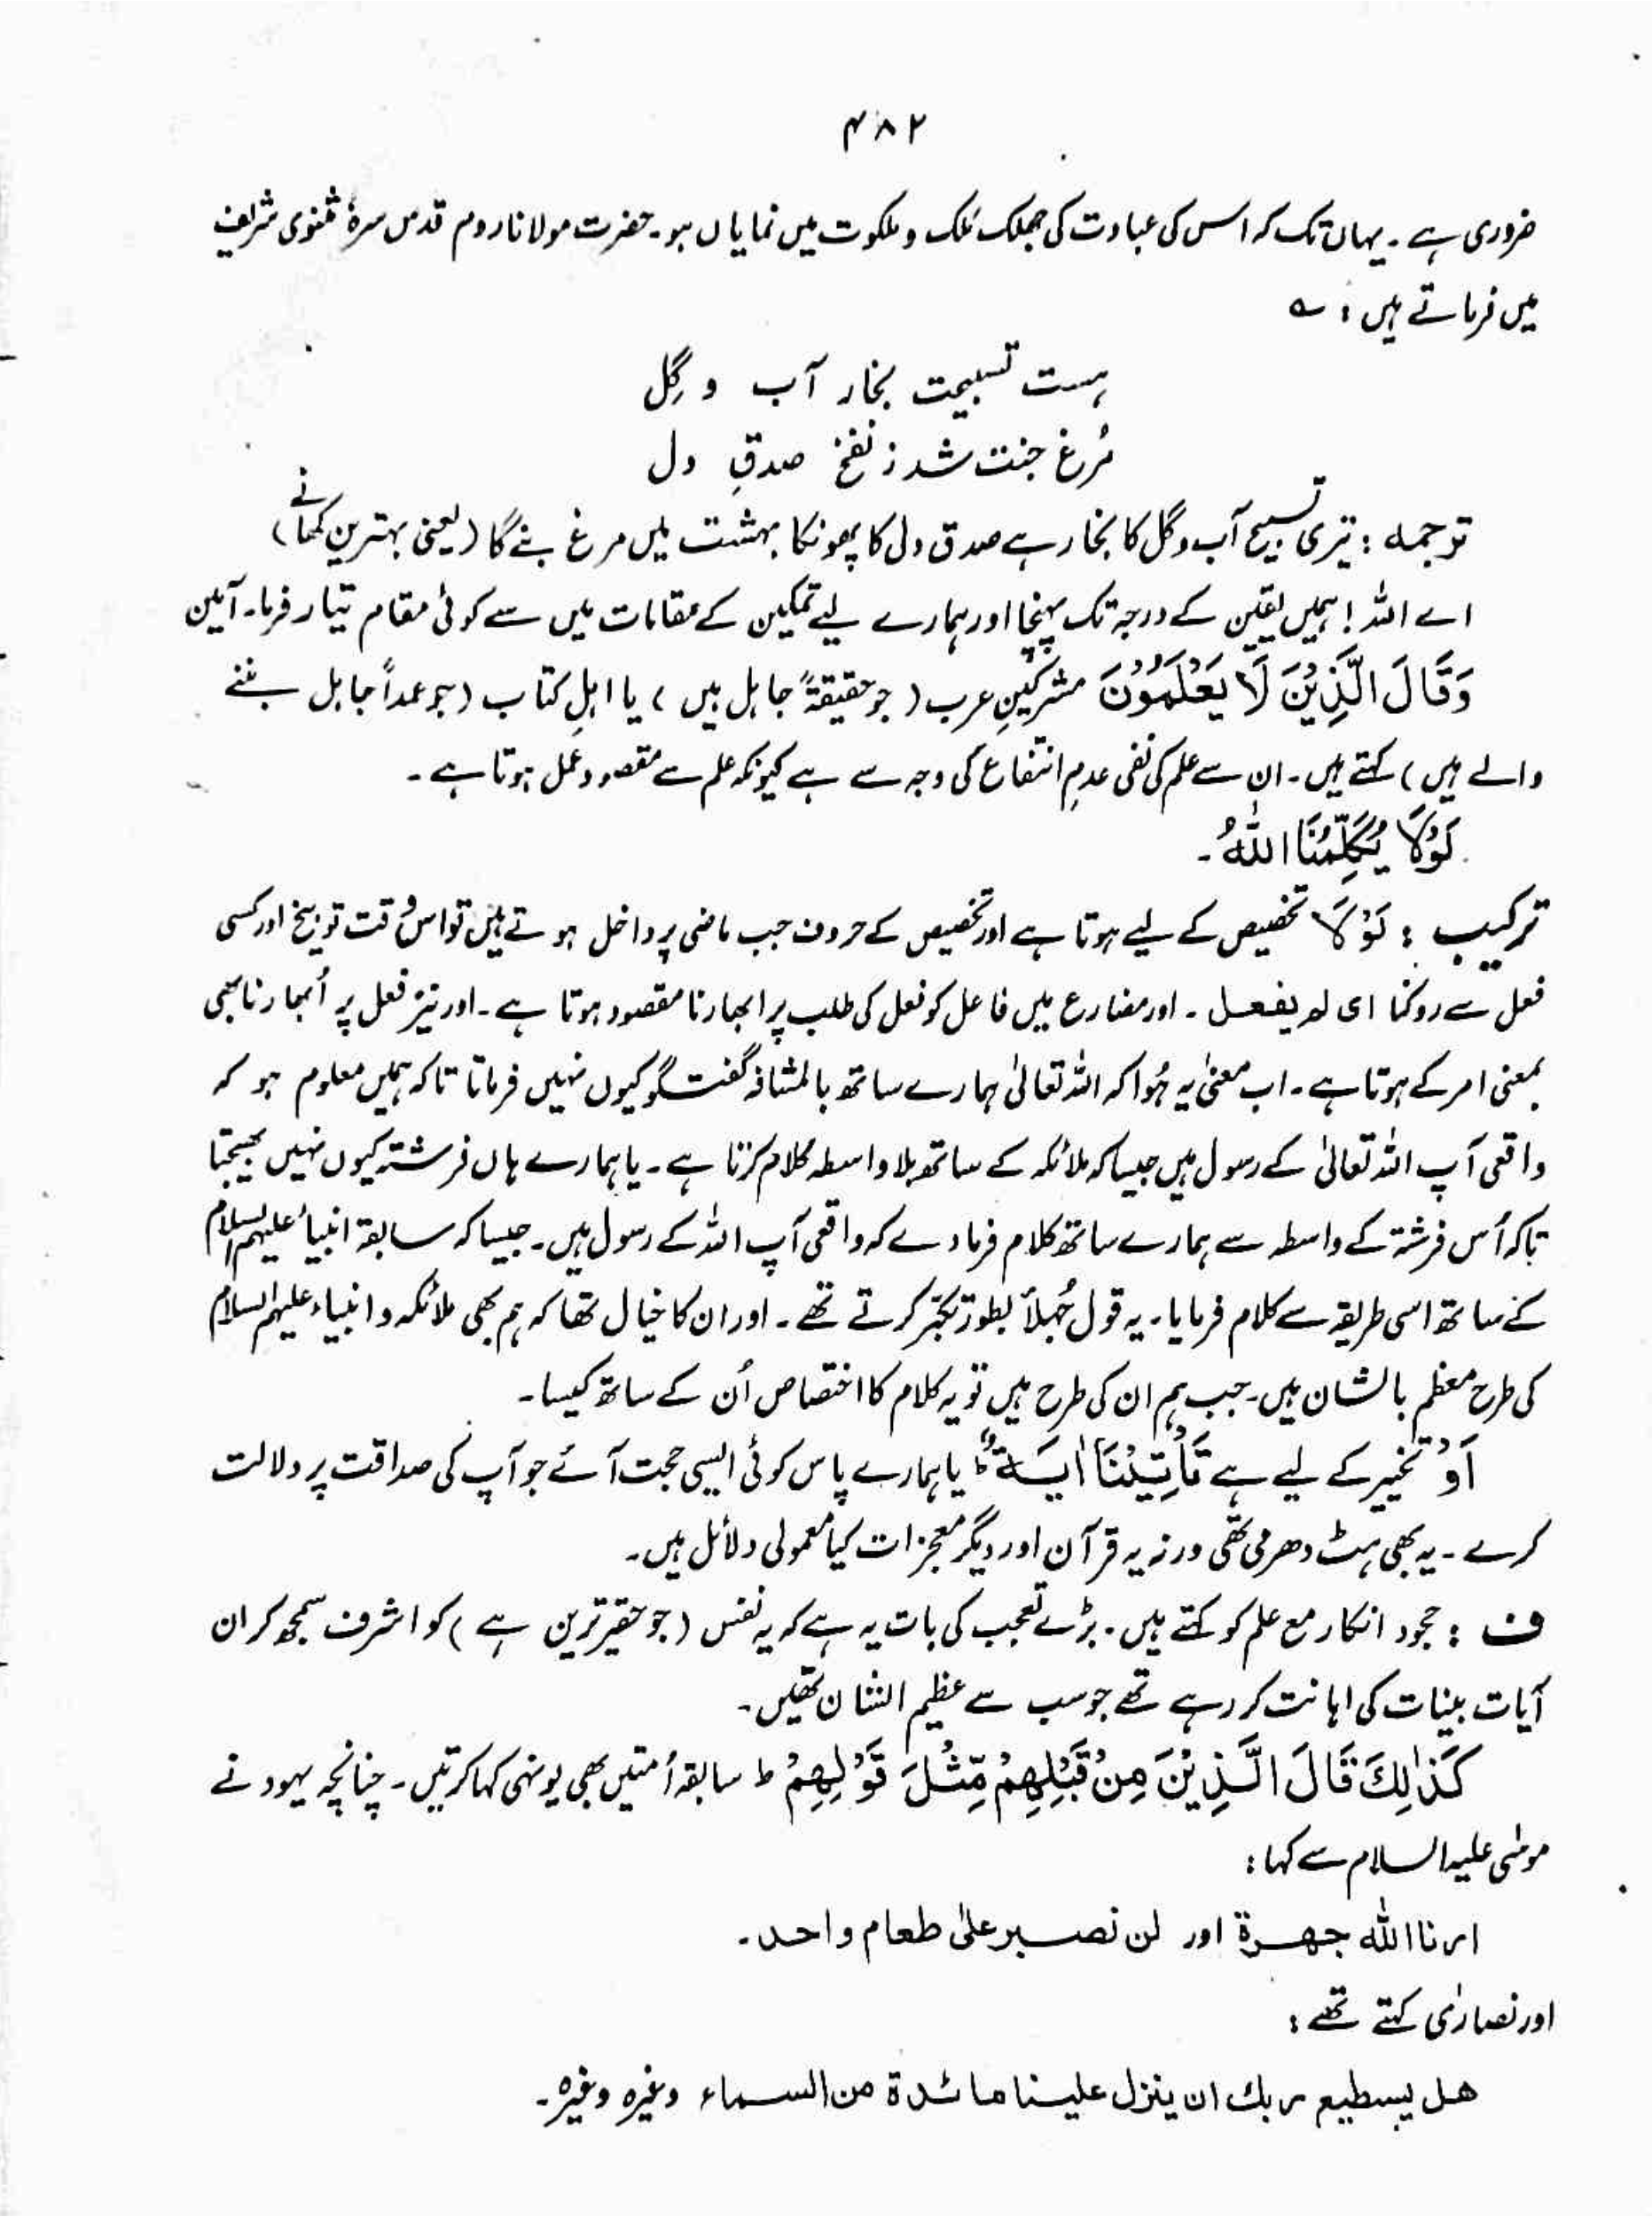 ۴۸۲
ضروری ہے ۔ یہاں تک کہ اس کی عبادت کی جھلک مُلک و ملکوت میں نمایاں ہو ۔ حضرت مولانا روم قدس سرہٗ مثنوی شریف
میں فرماتے ہیں : ؎
ہست تسبیحت بخار آب و گِل
مُرغ جنت شد ز نفخ صدقِ دل
ترجمہ : تیری تسبیح آب و گل کا بخار ہے صدق دل کا پھونکا بہشت میں مرغ بنے گا (یعنی بہترین کھانے)
اے اللہ ! ہمیں یقین کے درجہ تک پہنچا اور ہمارے لیے تمکین کے مقامات میں سے کوئی مقام تیار فرما۔ آمین
وَقَالَ الَّذِیْنَ لَا یَعْلَمُوْنَ مشرکینِ عرب ( جو حقیقۃً جاہل ہیں ) یا اہلِ کتاب (جو عمداً جاہل بننے
والے ہیں ) کہتے ہیں ۔ ان سے علم کی نفی عدمِ انتفاع کی وجہ سے ہے کیونکہ علم سے مقصود عمل ہوتا ہے ۔
لَوْلَا یُکَلِّمُنَا اللّٰہُ ۔
ترکیب : لَوْلَا تخصیص کے لیے ہوتا ہے اور تخصیص کے حروف جب ماضی پر داخل ہوتے ہیں تو اس وقت توبیخ اور کسی
فعل سے روکنا ای لم یفعل ۔ اور مضارع میں فاعل کو فعل کی طلب پر ابھارنا مقصود ہوتا ہے ۔ اور نیز فعل پر اُبھارنا بھی
بمعنی امر کے ہوتا ہے ۔ اب معنیٰ یہ ہُوا کہ اللہ تعالیٰ ہمارے ساتھ بالمشافہ گفتگو کیوں نہیں فرماتا تاکہ ہمیں معلوم ہو کہ
واقعی آپ اللہ تعالیٰ کے رسول ہیں جیسا کہ ملائکہ کے ساتھ بلا واسطہ کلام کرتا ہے ۔ یا ہمارے ہاں فرشتہ کیوں نہیں بھیجتا
تاکہ اُس فرشتہ کے واسطہ سے ہمارے ساتھ کلام فرمادے کہ واقعی آپ اللہ کے رسول ہیں ۔ جیسا کہ سابقہ انبیاء علیہم السلام
کے ساتھ اسی طریقہ سے کلام فرمایا ۔ یہ قول جُہلاً بطور تکبّر کرتے تھے ۔ اور ان کا خیال تھا کہ ہم بھی ملائکہ و انبیاء علیہم السلام
کی طرح معظم بالشان ہیں ۔ جب ہم ان کی طرح ہیں تو یہ کلام کا اختصاص اُن کے ساتھ کیسا ۔
اَوْ تخییر کے لیے ہے تَاْتِیْنَا اٰیَۃٌ ط یا ہمارے پاس کوئی ایسی حجت آئے جو آپ کی صداقت پر دلالت
کرے ۔ یہ بھی ہٹ دھرمی تھی ورنہ یہ قرآن اور دیگر معجزات کیا معمولی دلائل ہیں ۔
ف : جحود انکار مع علم کو کہتے ہیں ۔ بڑے تعجب کی بات یہ ہے کہ یہ نفس (جو حقیر ترین ہے ) کو اشرف سمجھ کر ان
آیات بینات کی اہانت کر رہے تھے جو سب سے عظیم الشان تھیں ۔
کَذٰلِکَ قَالَ الَّذِیْنَ مِنْ قَبْلِہِمْ مِّثْلَ قَوْلِہِمْ ط سابقہ اُمتیں بھی یونہی کہا کرتیں ۔ چنانچہ یہود نے
موسٰی علیہ السلام سے کہا :
ارنا اللہ جہرۃ اور لن نصبر علیٰ طعام واحد ۔
اور نصارٰی کہتے تھے :
ھل یسطیع ربك ان ینزل علینا مائدۃ من السماء وغیرہ وغیرہ ۔